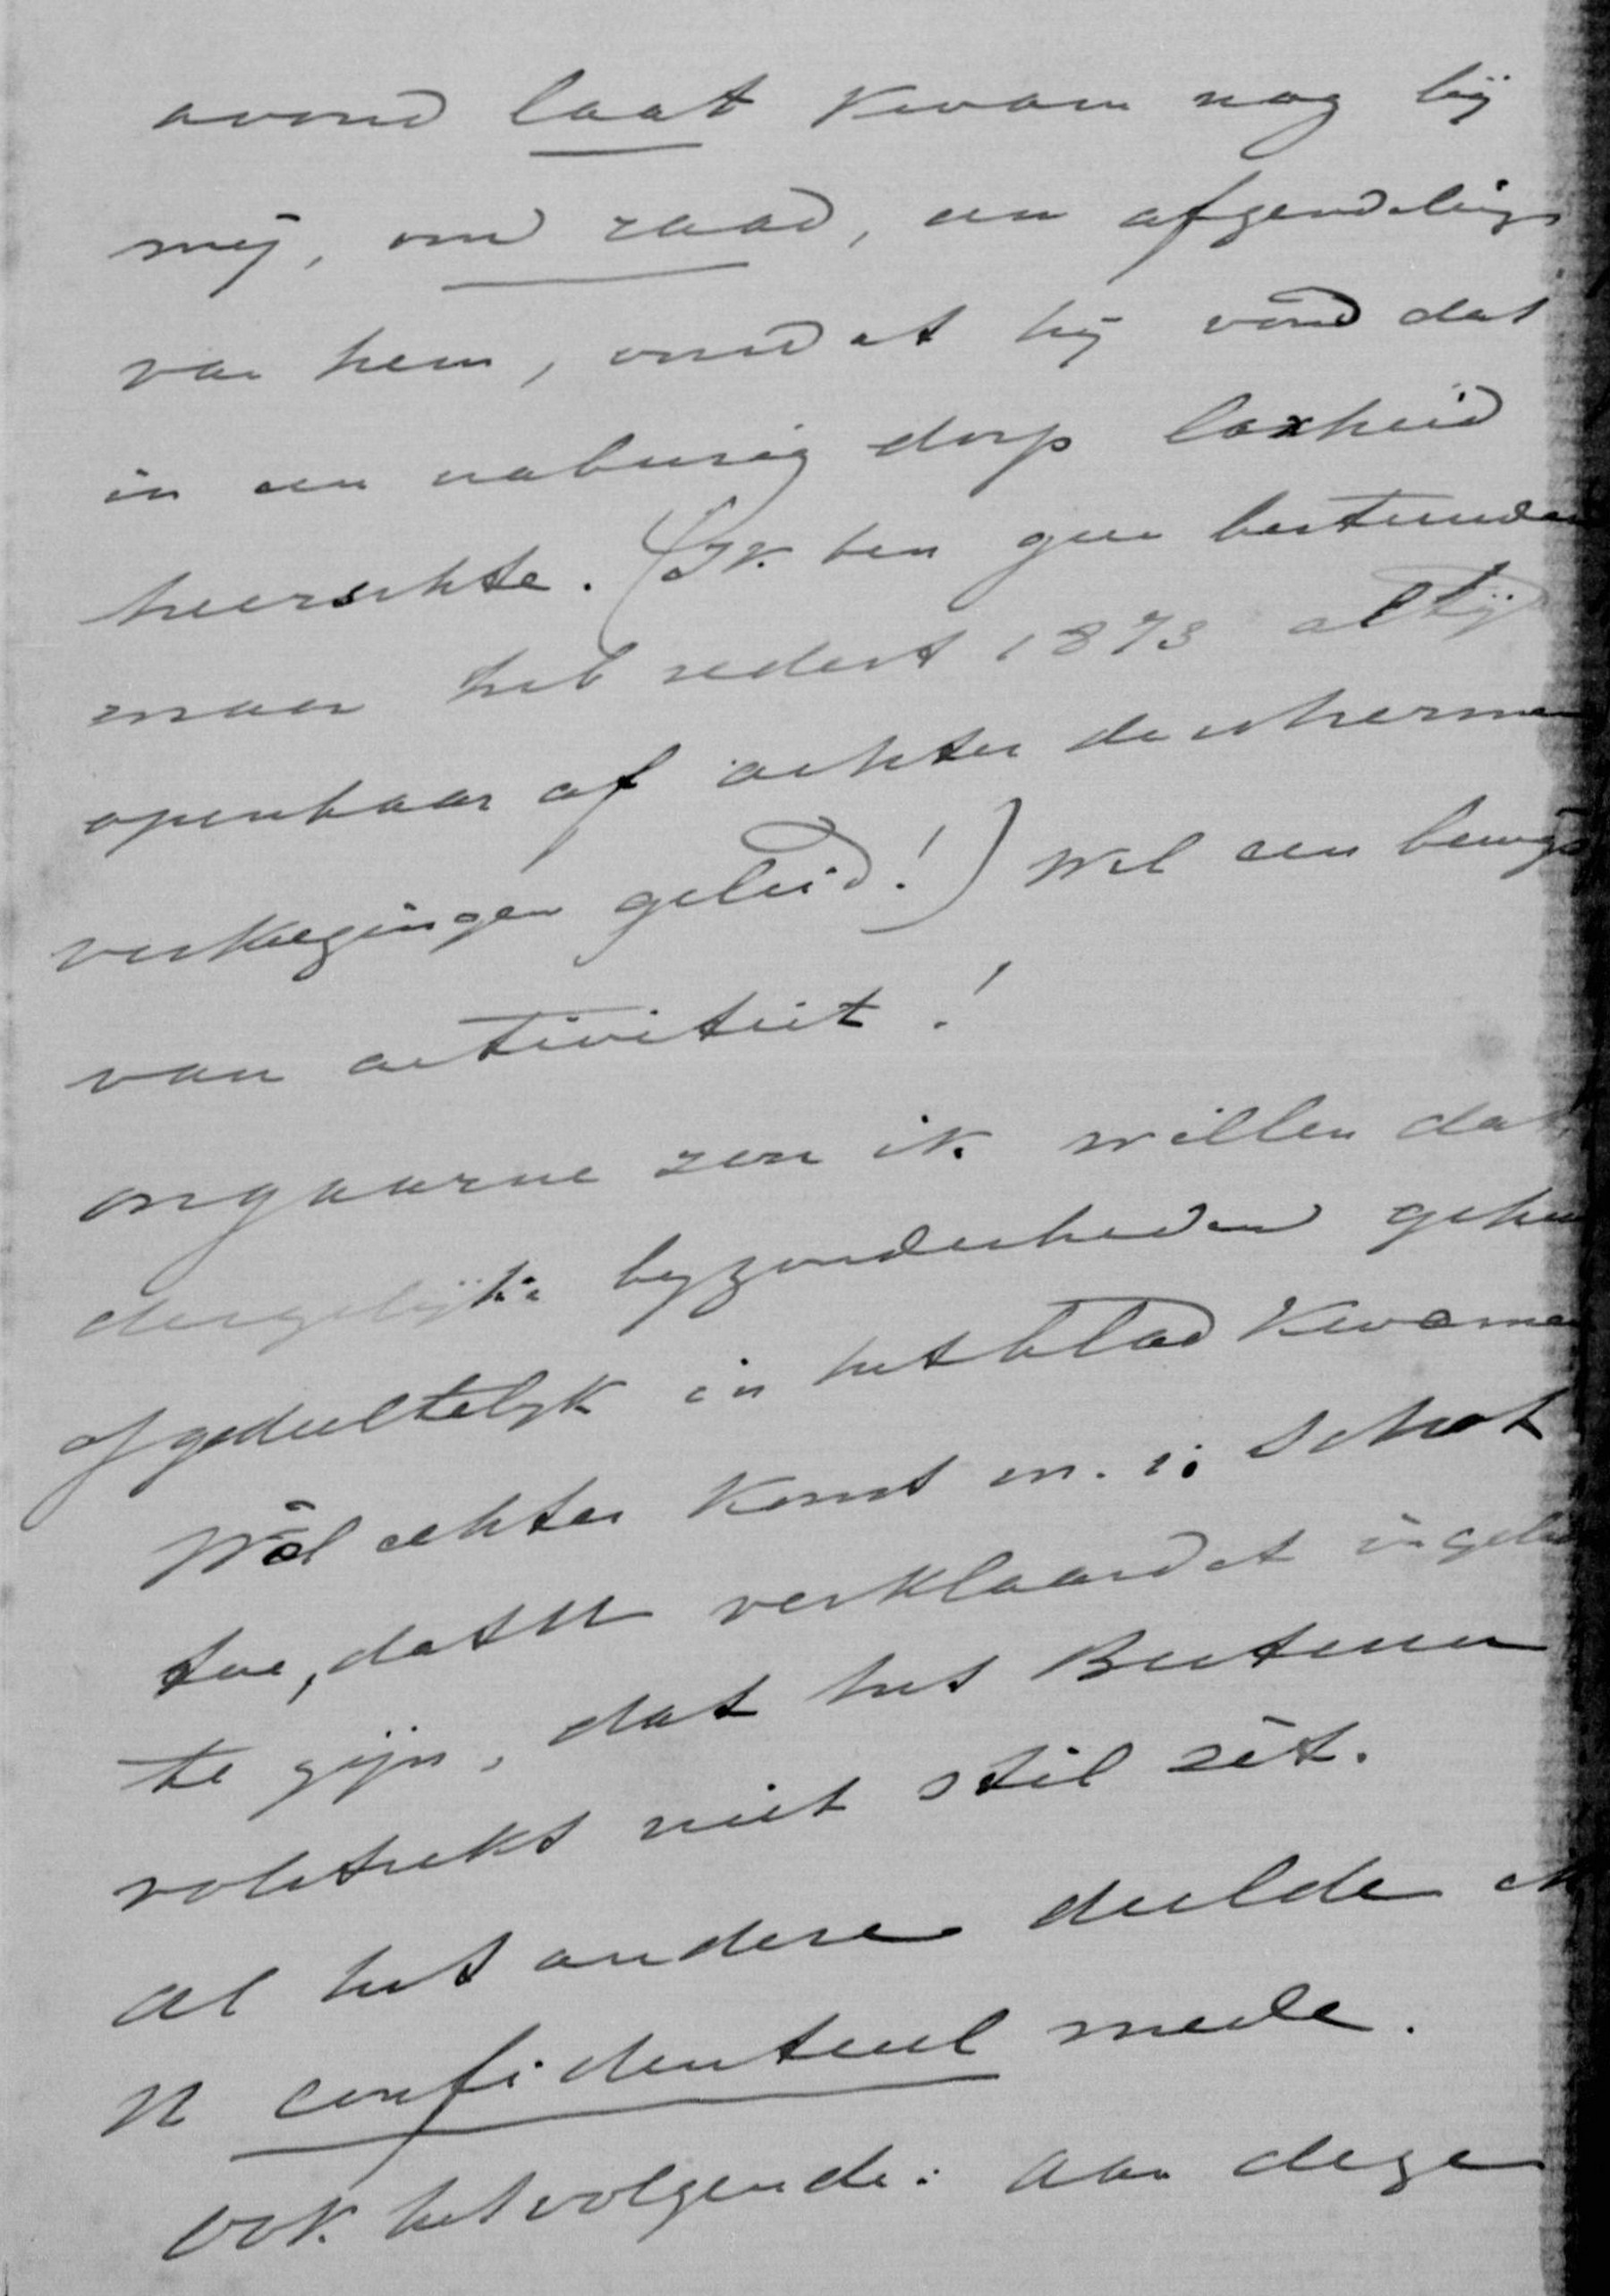 avond laat kwam nog bij
mij, om raad, een afgendeling
van hem, omdat hij vond dat
in een naburig dorp laxheid
heerschte. (Ik ben geen bestuurder
maar heb sedert 1873 altijd
openbaar of achter de schermen
verkiezingen geleid!) Wel een bewijs
van activiteit!
ongaarne zou ik willen dat
dergelijke byzonderheden geheel
of gedeeltelyk in het blad kwamen
Wèl echter komt m.i. Schot
toe, dat U verklaardet ingelicht
te zijn, dat het Bestuur
volstrekt niet stil zit.
Al het andere deelde ik
U confidentieel mede.
Ook het volgende: Aan deze